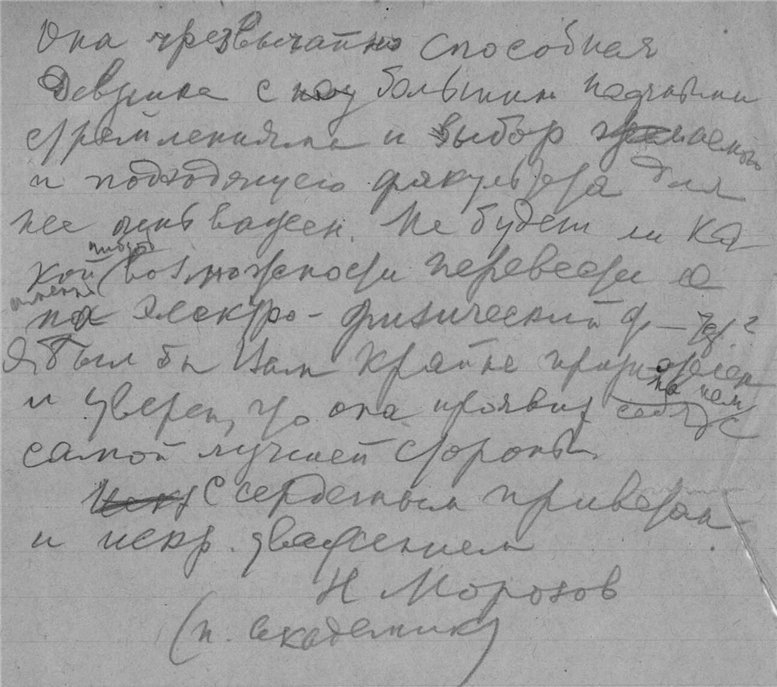 Она чрезвычайно способная
Девушка с большими научными
стремлениями и выбор желаемого
и подходящего факультета для
нее очень важен. Не будет ли ка
кой нибудь возможности перевести ее
именно на электро-физический ф-тет?
Я был бы Вам крайне признателен
и уверен, что она проявит на нем себя с
самой лучшей стороны.
С сердечным приветом
и искр. уважением
Н Морозов
(п. академик)